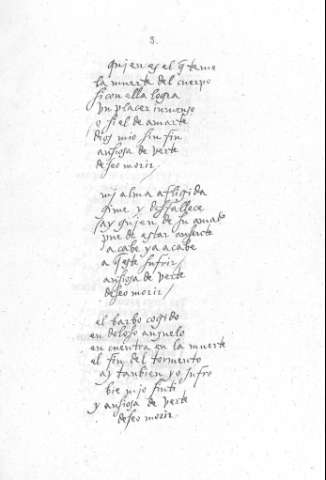 3.
quien es el q̃ teme
la muerte del cuerpo
si con ella logra
un placer inmenso
o si el de amarte
dios mio sin fin
ansiosa de verte
deseo morir
mi alma afligida
gime y desfallece
ay quien de su amado
pue de estar ausente
acabe ya acabe
a queste sufrir
ansiosa de verte
deseo morir
el barbo cogido
en doloso anzuelo
en cuentra en la muerte
el fin del tormento
ay tanbien yo sufro
bie mio
y ansiosa de verte
deseo morir.